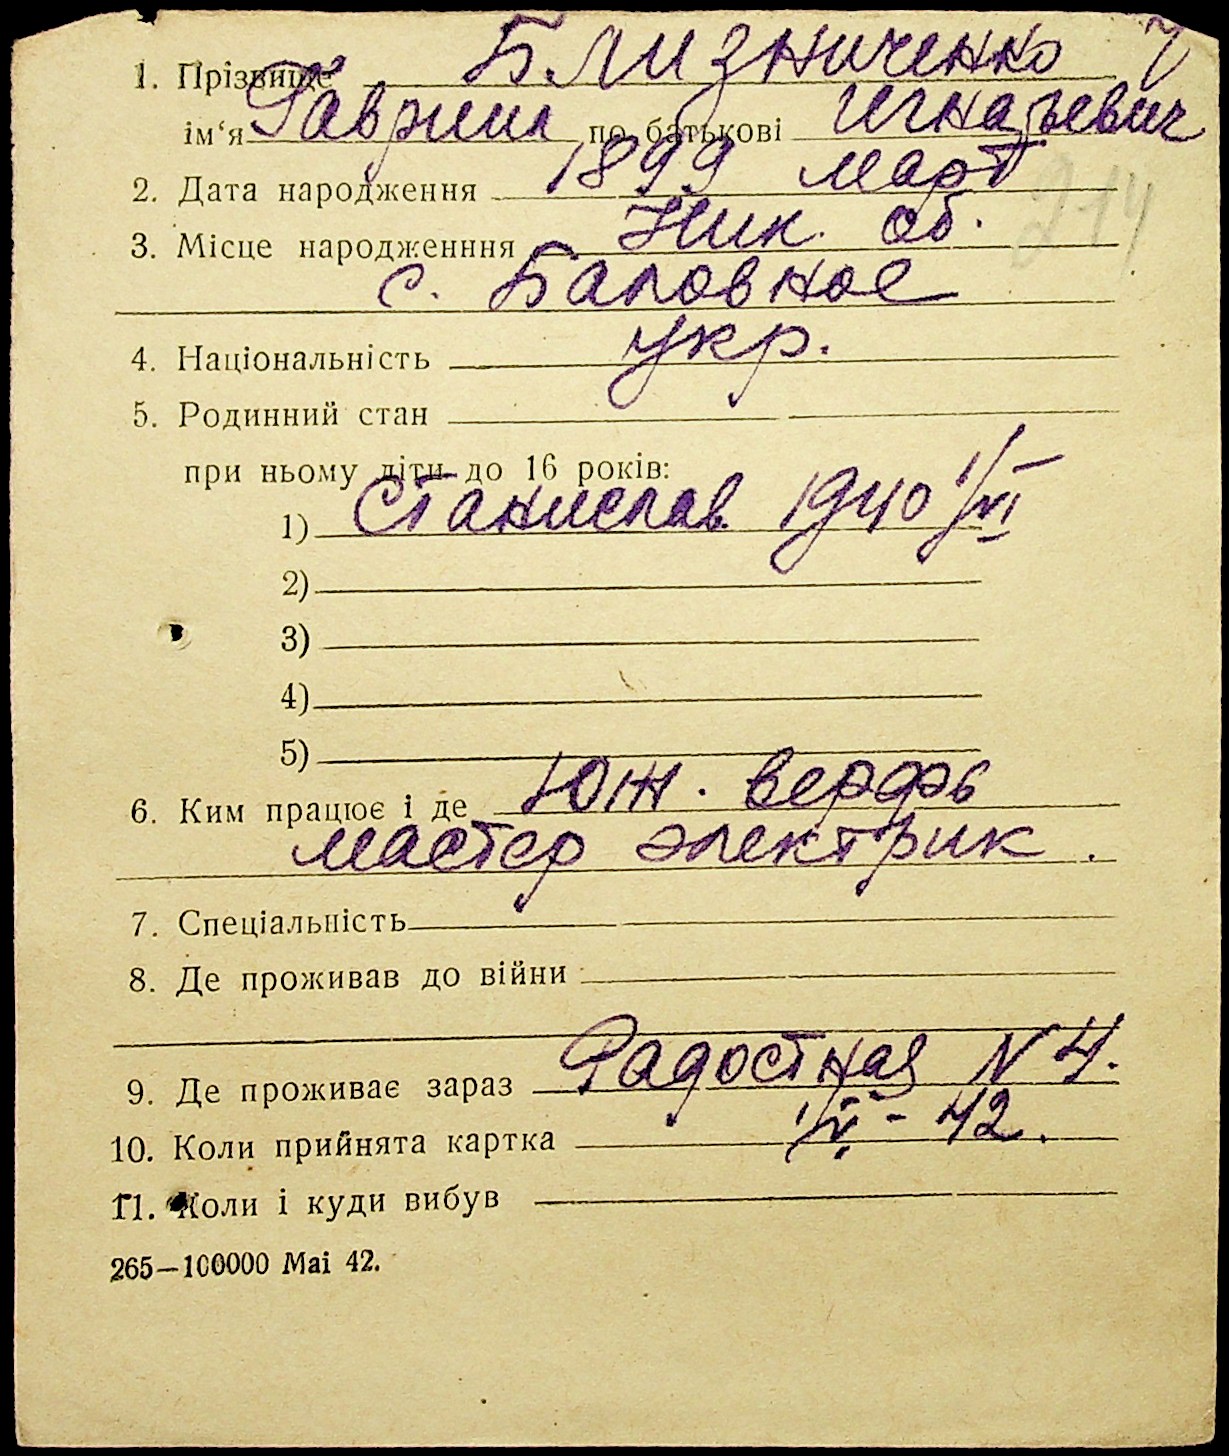 1. Прізвище Близниченко
ім‘я Гавриил по батькові Игнатьевич
2. Дата народження 1899 март
3. Місце народженння Ник. об.
с. Баловное
4. Національність укр.
5. Родинний стан
при ньому діти до 16 років:
1) Станислав 1940 1/VI
2)
3)
4)
5)
6. Ким працює і де Юж. верфь
мастер электрик.
7. Спеціальність
8. Де проживав до війни
9. Де проживає зараз Радостная N 4.
10. Коли прийнята картка 1/V - 42.
11. Коли і куди вибув
265—100000 Mai 42.